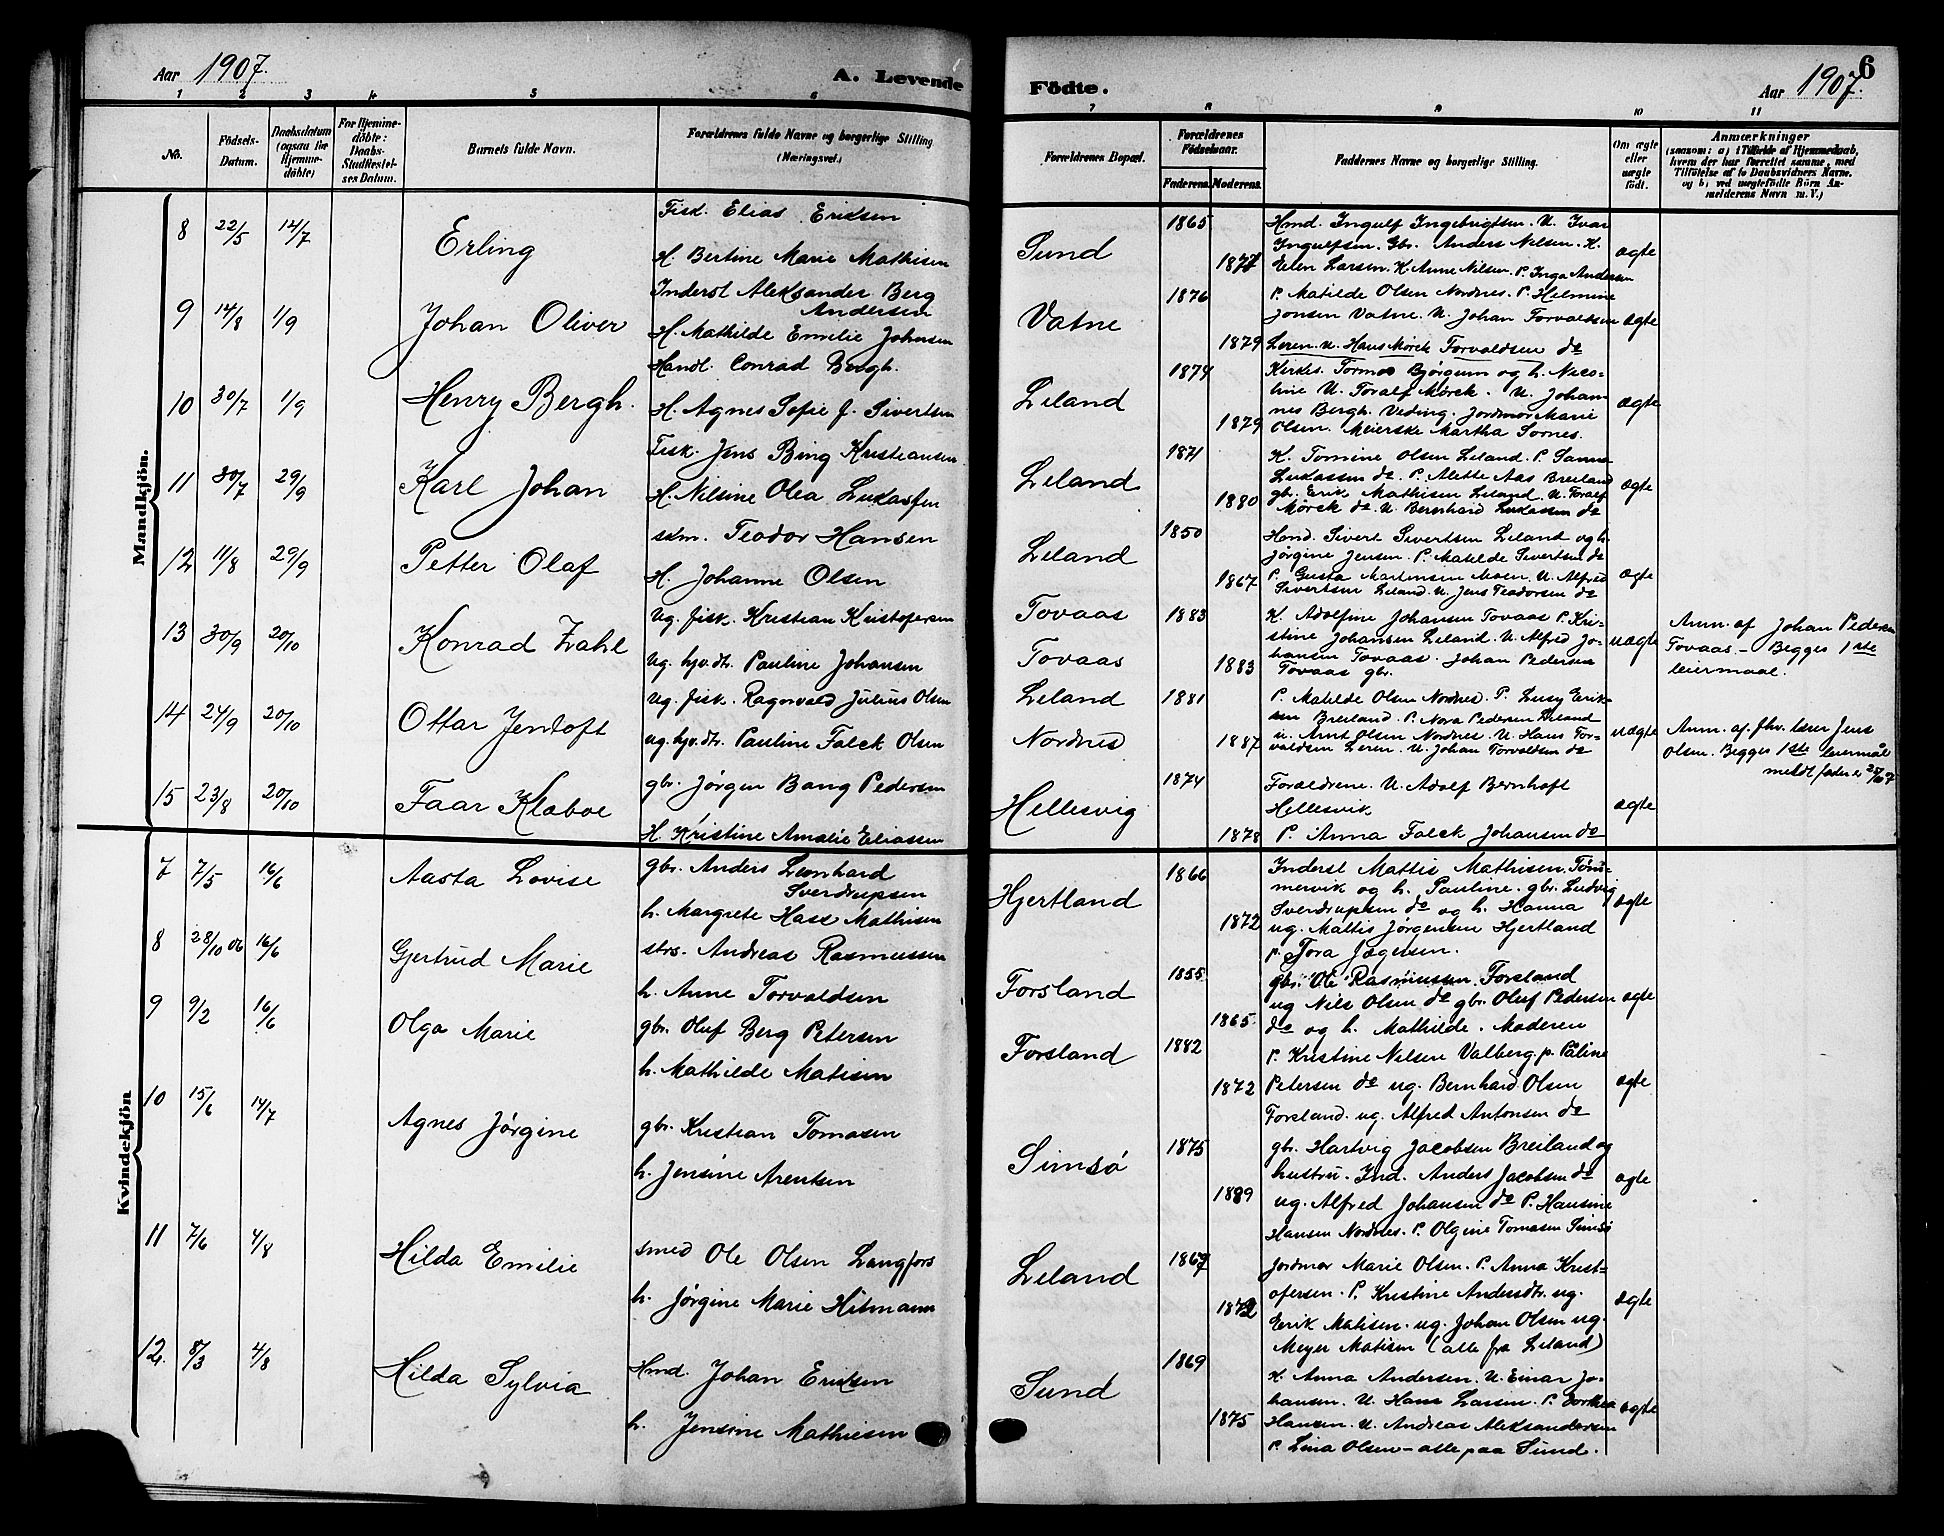 Aar 1907.
A. Levende Födte.
Aar 1907.
6
1 2 3 4 5 6 7 8 9 10 11
No.
Födsels-Datum.
Daabsdatum (ogsaa for Hjemmedöbte)
For Hjemmedöbte: Daabs-Stadfestelses Datum.
Barnets fulde Navn.
Forældrenes fulde Navne og borgerlige Stilling (Næringsvei.)
Forældrenes Bopæl.
Forældrenes Födselsaar.
Faderens. Moderens.
Faddernes Navne og borgerlige Stilling.
Om ægte eller uægte födt.
Anmærkninger
(saasom: a) i Tilfælde af Hjemmedaab, hvem der har forrettet samme, med Tilföielse af to Daabsvidners Navne, og b) ved uægtefödte Börn Anmelderens Navn m. V.)
Mandkjön.
8 22/5 14/7 Erling
Fisk. Elias Eriksen
H. Bertine Marie Mathisen
Sund 1865 1877
Hmd. Ingulf Ingebrigtsen. U. Ivar
Ingulfsen. Gbr. Anders Nilsen. H.
Elen Larsen. H. Anne Nilsen. P. Inga Andersen
ægte
9 14/8 1/9 Johan Oliver
Inderst Aleksander Berg
Andersen
H. Mathilde Emilie Johnsen
Vatne 1876 1879
P. Matilde Olsen Nordnes. P. Helmine
Jonsen Vatne. U. Johan Torvaldsen
Leren. U. Hans Mörck Torvaldsen do
ægte
10 30/7 1/9 Henry Bergh.
Handl. Conrad Bergh.
H. Agnes Sofie f. Sivertsen
Leland 1874 1879
Kirkes. Tormod Bjørgum og h. Nico-
line U. Toralf Mörck. U. Johan-
nes Bergh. Veding. Jordmor Marie
Olsen. Meierske Martha Sornes.
ægte
11 30/7 29/9 Karl Johan
Fisk. Jens Bing Kristiansen
H. Nilsine Olea Lukassen
Leland 1871 1880
H. Tomine Olsen Leland. P. Sanna
Lukassen do. P. Alette Aas Breiland
gbr. Erik Mathisen Leland. U. Toralf
Mörck do. U. Bernhard Lukassen do
ægte
12 11/8 29/9 Petter Olaf
skm. Teodor Hansen
H. Johanne Olsen
Leland 1850 1867
Hmd. Sivert Sivertsen Leland og h.
Jørgine Jensen. P. Matilde Sivertsen do
P. Gusta Martensen Moen. U. Alfred
Sivertsen Leland. U. Jens Teodorsen do
ægte
13 30/9 20/10 Konrad Zahl
Ug. fisk. Kristian Kristofersen
Ug. hjv.dtr. Pauline Johansen
Tovaas
Tovaas
1883 1883
H. Adolfine Johansen Tovaas P. Kri-
stine Johansen Leland. U. Alfred Jo-
hansen Tovaas. Johan Pedersen
Tovaas gbr.
uægte
Anm. af Johan Pedersen
Tovaas - Begges 1ste
leiermaal.
14 24/9 20/10 Ottar Jentoft
Ug. fisk. Ragnvald Julius Olsen
ug. hjv.dtr. Pauline Falck Olsen
Leland
Nordnes
1881 1887
P. Matilde Olsen Nordnes. P. Lusy Erik-
sen Breiland. P. Nora Pedersen Leland
u. Arnt Olsen Nordnes. U. Hans Tor-
valdsen Leren. U. Johan Torvaldsen do
uægte
Anm. af fhv. lærer Jens
Olsen. Begges 1ste leiermål
meldt fader
15 23/8 20/10 Faar Klaboe
gbr. Jørgen Bang Pedersen
H. Kristine Amalie Eliassen
Hellesvig 1874 1878
Forældrene. U. Adolf Bernhoft
Hellesvik
P. Anna Falck Johansen do
ægte
Kvindekjön
7 7/5 16/6 Aasta Lovise
gbr. Anders Leonhard
Sverdrupsen
h. Margrete Hass Mathisen
Hjertland 1866 1872
Inderst Mattis Mathisen Töm-
mervik og h. Pauline. gbr. Ludvig
Sverdrupsen do og h. Hanna
ug. Mattis Jørgensen Hjertland
p. Tora Jøgensen.
ægte
8 28/10 06 16/6 Gjertrud Marie
strs. Andreas Rasmussen
h. Anne Torvaldsen
Forsland 1855 1865.
gbr. Ole Rasmussen Forsland
ug Nils Olsen do gbr. Oluf Pedersen
do og h. Mathilde. Moderen
ægte
9 9/2 16/6 Olga Marie
gbr. Oluf Berg Petersen
h. Mathilde Matisen
Forsland 1882 1872
P. Kristine Nilsen Valberg. p. Páline
Petersen do ug. Bernhard Olsen
Forsland. ug. Alfred Antonsen do
ægte
10 15/6 14/7 Agnes Jørgine
gbr. Kristian Tomasen
h. Jensine Arentsen
Simsø 1875 1889
gbr. Hartvig Jacobsen Breiland og
hustru. Ind. Anders Jacobsen do
ug. Alfred Johansen do P. Hansine
Hansen Nordnes. P. Olgine Tomasen Simsø
ægte
11 7/6 4/8 Hilda Emilie
smed Ole Olsen Langfors
h. Jørgine Marie Hitmann
Leland 1867 1872
Jordmor Marie Olsen. P. Anna Krist-
ofersen. P. Kristine Andersdtr. ug.
Erik Matisen. ug. Johan Olsen ug.
Meyer Matisen (alle fra Leland)
ægte
12. 8/3 4/8 Hilda Sylvia
Hmd. Johan Eriksen
h. Jensine Mathiesen
Sund 1869 1875
H. Anna Andersen. U. Einar Jo-
hansen. U. Hans Larsen. P. Dorthea
Hansen. U. Andreas Aleksandersen
P. Lina Olsen - alle paa Sund.
ægte